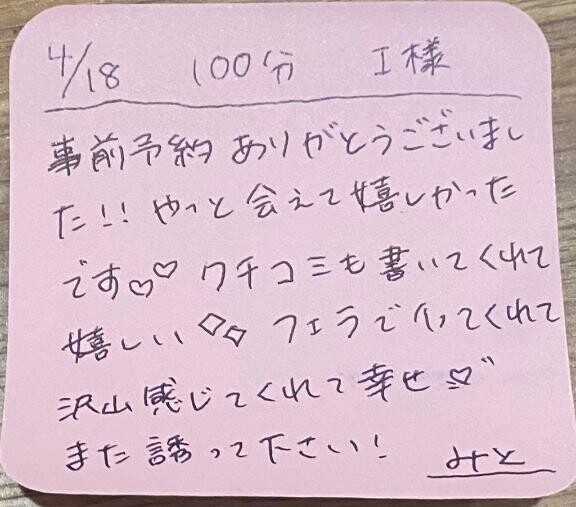 4/18 100分 I様
事前予約ありがとうございまし
た!! やっと会えて嬉しかった
です♡♡ クチコミも書いてくれて
嬉しい◇◇ フェラでイってくれて
沢山感じてくれて幸せ♡"
また誘って下さい!
みと